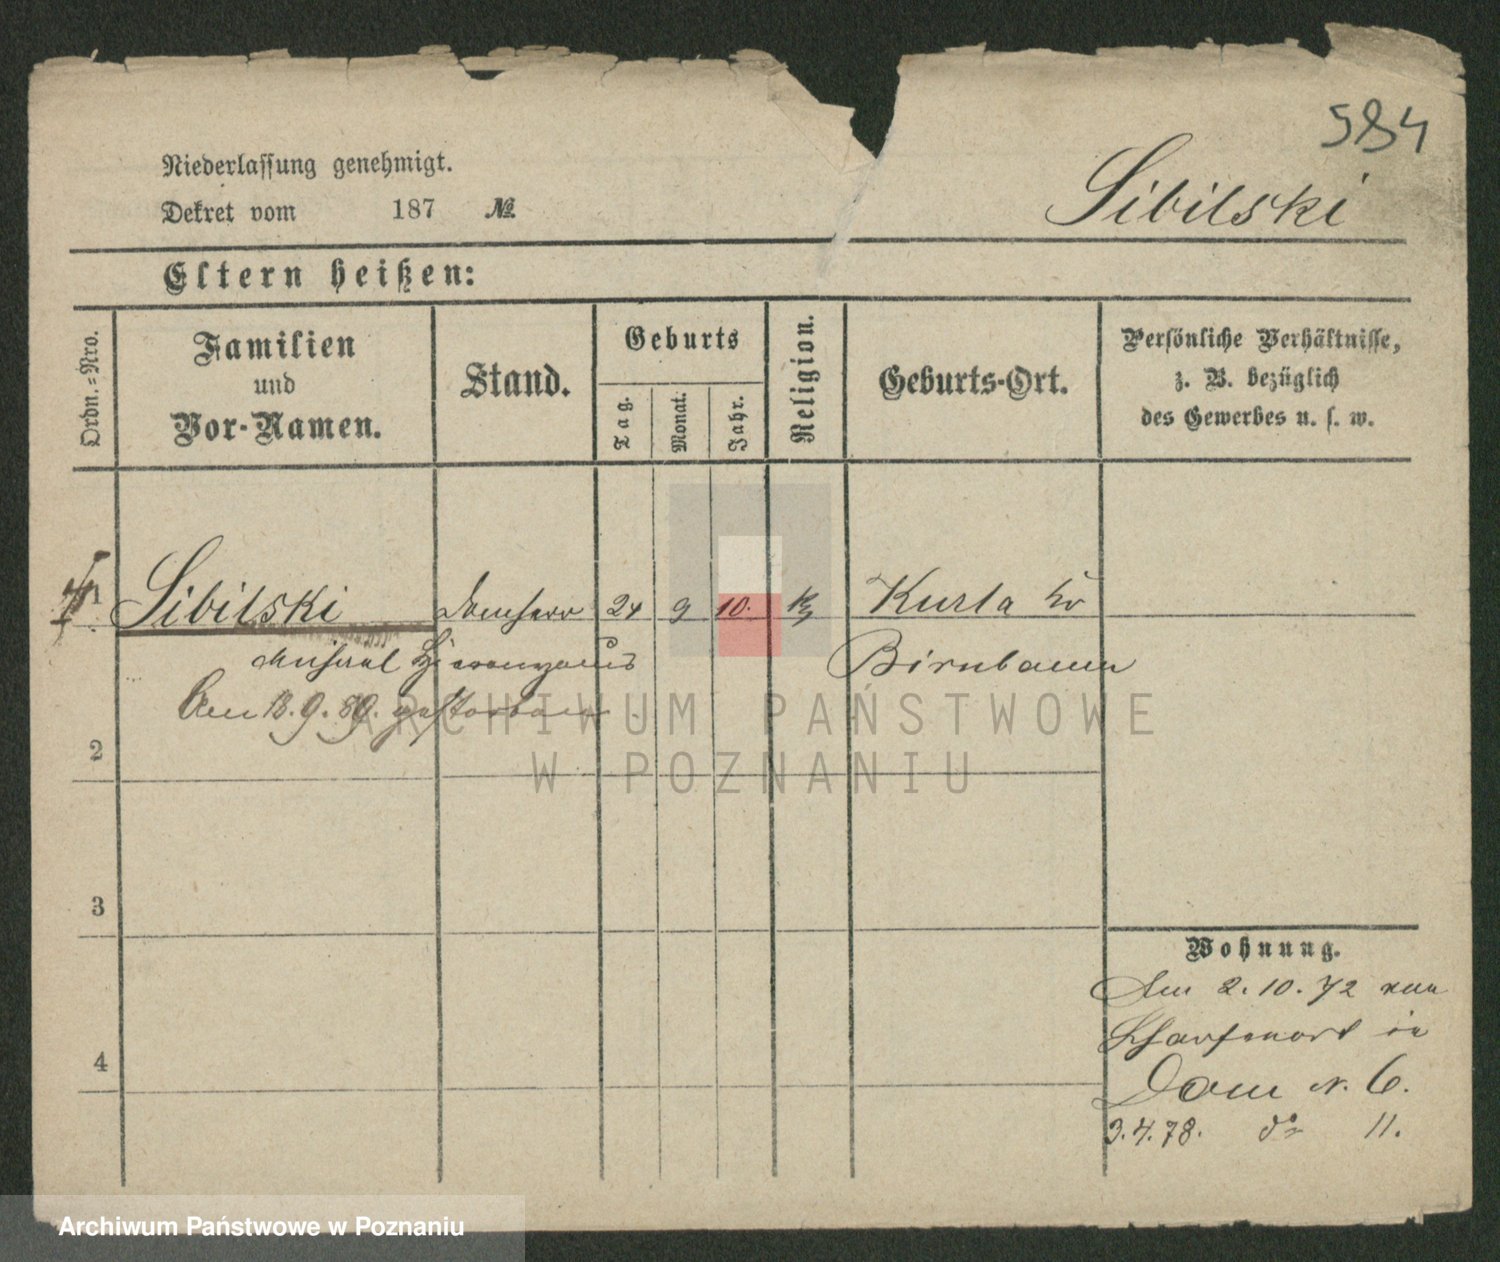 584
Niederlassung genehmigt.
Dekret vom 187 №
Sibilski
Eltern heißen:
Ordn.-Nro.
Familien
und
Vor-Namen.
Stand.
Geburts
Tag.
Monat.
Jahr.
Religion.
Geburts-Ort.
Persönliche Verhältnisse,
z. B. bezüglich
des Gewerbes u. s. w.
1 Sibilski Domherr 24 9 10. Kurla Kr
Hieronymus Birnbaum
Am 18.9.80. gestorben
ARCHIWUM PAŃSTWOWE
2
W POZNANIU
3
Wohnung.
Am 2.10.72 von
Scharfenort in
4
Dom N. 6.
3.4.78. do 11.
Archiwum Państwowe w Poznaniu